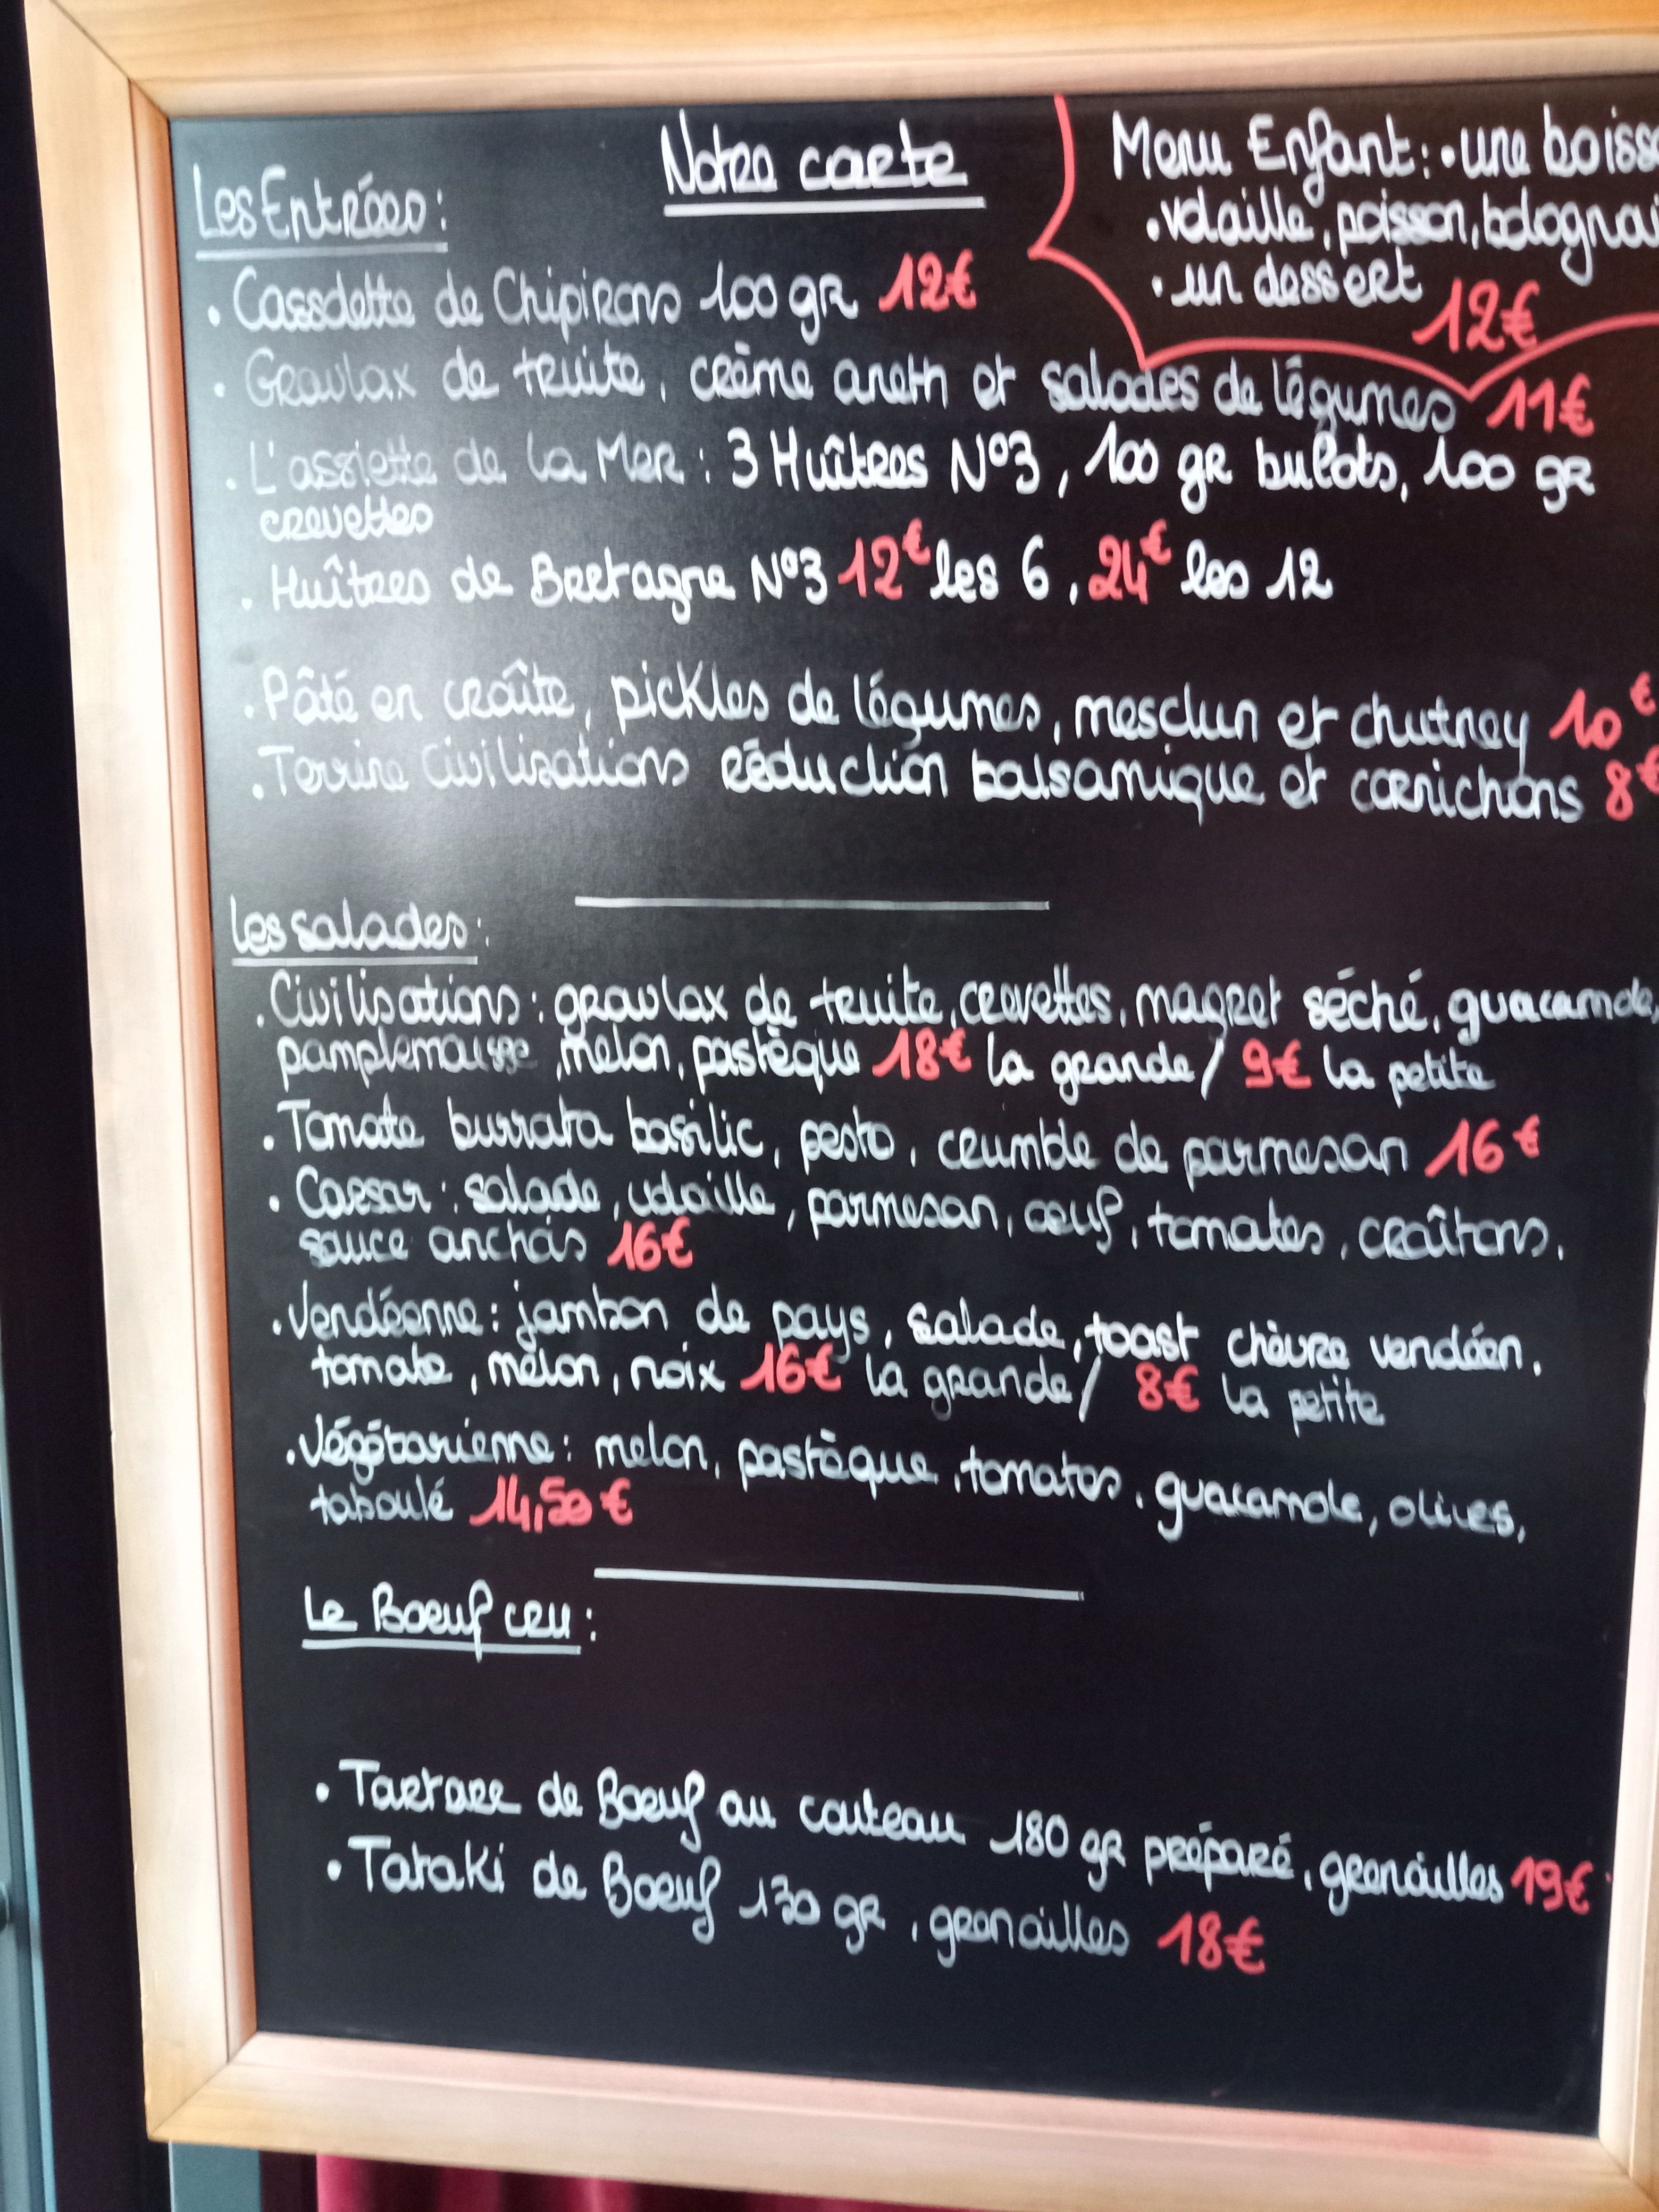 Notre carte
Menu Enfant: • une boiss
• volaille, poisson, bolognai
• un dessert
12€
Les Entrées:
• Cassolette de Chipirons 100 gr 12€
• Gravlax de truite, crème aneth et salades de légumes 11€
• L'assiette de la Mer : 3 Huîtres N°3, 100 gr bulots, 100 gr
crevettes
• Huîtres de Bretagne N°3 12€ les 6, 24€ les 12
• Pâté en croûte, pickles de légumes, mesclun et chutney 10€
• Terrine Civilisations réduction balsamique et cornichons 8€
Les salades:
• Civilisations: gravlax de truite, crevettes, magret séché, guacamole,
pamplemousse, melon, pastèque 18€ la grande/ 9€ la petite
• Tomate burrata basilic, pesto, crumble de parmesan 16€
• Caesar: salade, volaille, parmesan, oeuf, tomates, croûtons,
sauce anchois 16€
• Vendéenne: jambon de pays, salade, toast chèvre vendéen,
tomate, melon, noix 16€ la grande/ 8€ la petite
• Végétarienne: melon, pastèque, tomates, guacamole, olives,
taboulé 14,50€
Le Boeuf cru:
• Tartare de Boeuf au couteau 180 gr préparé, grenailles 19€
• Tataki de Boeuf 130 gr, grenailles 18€